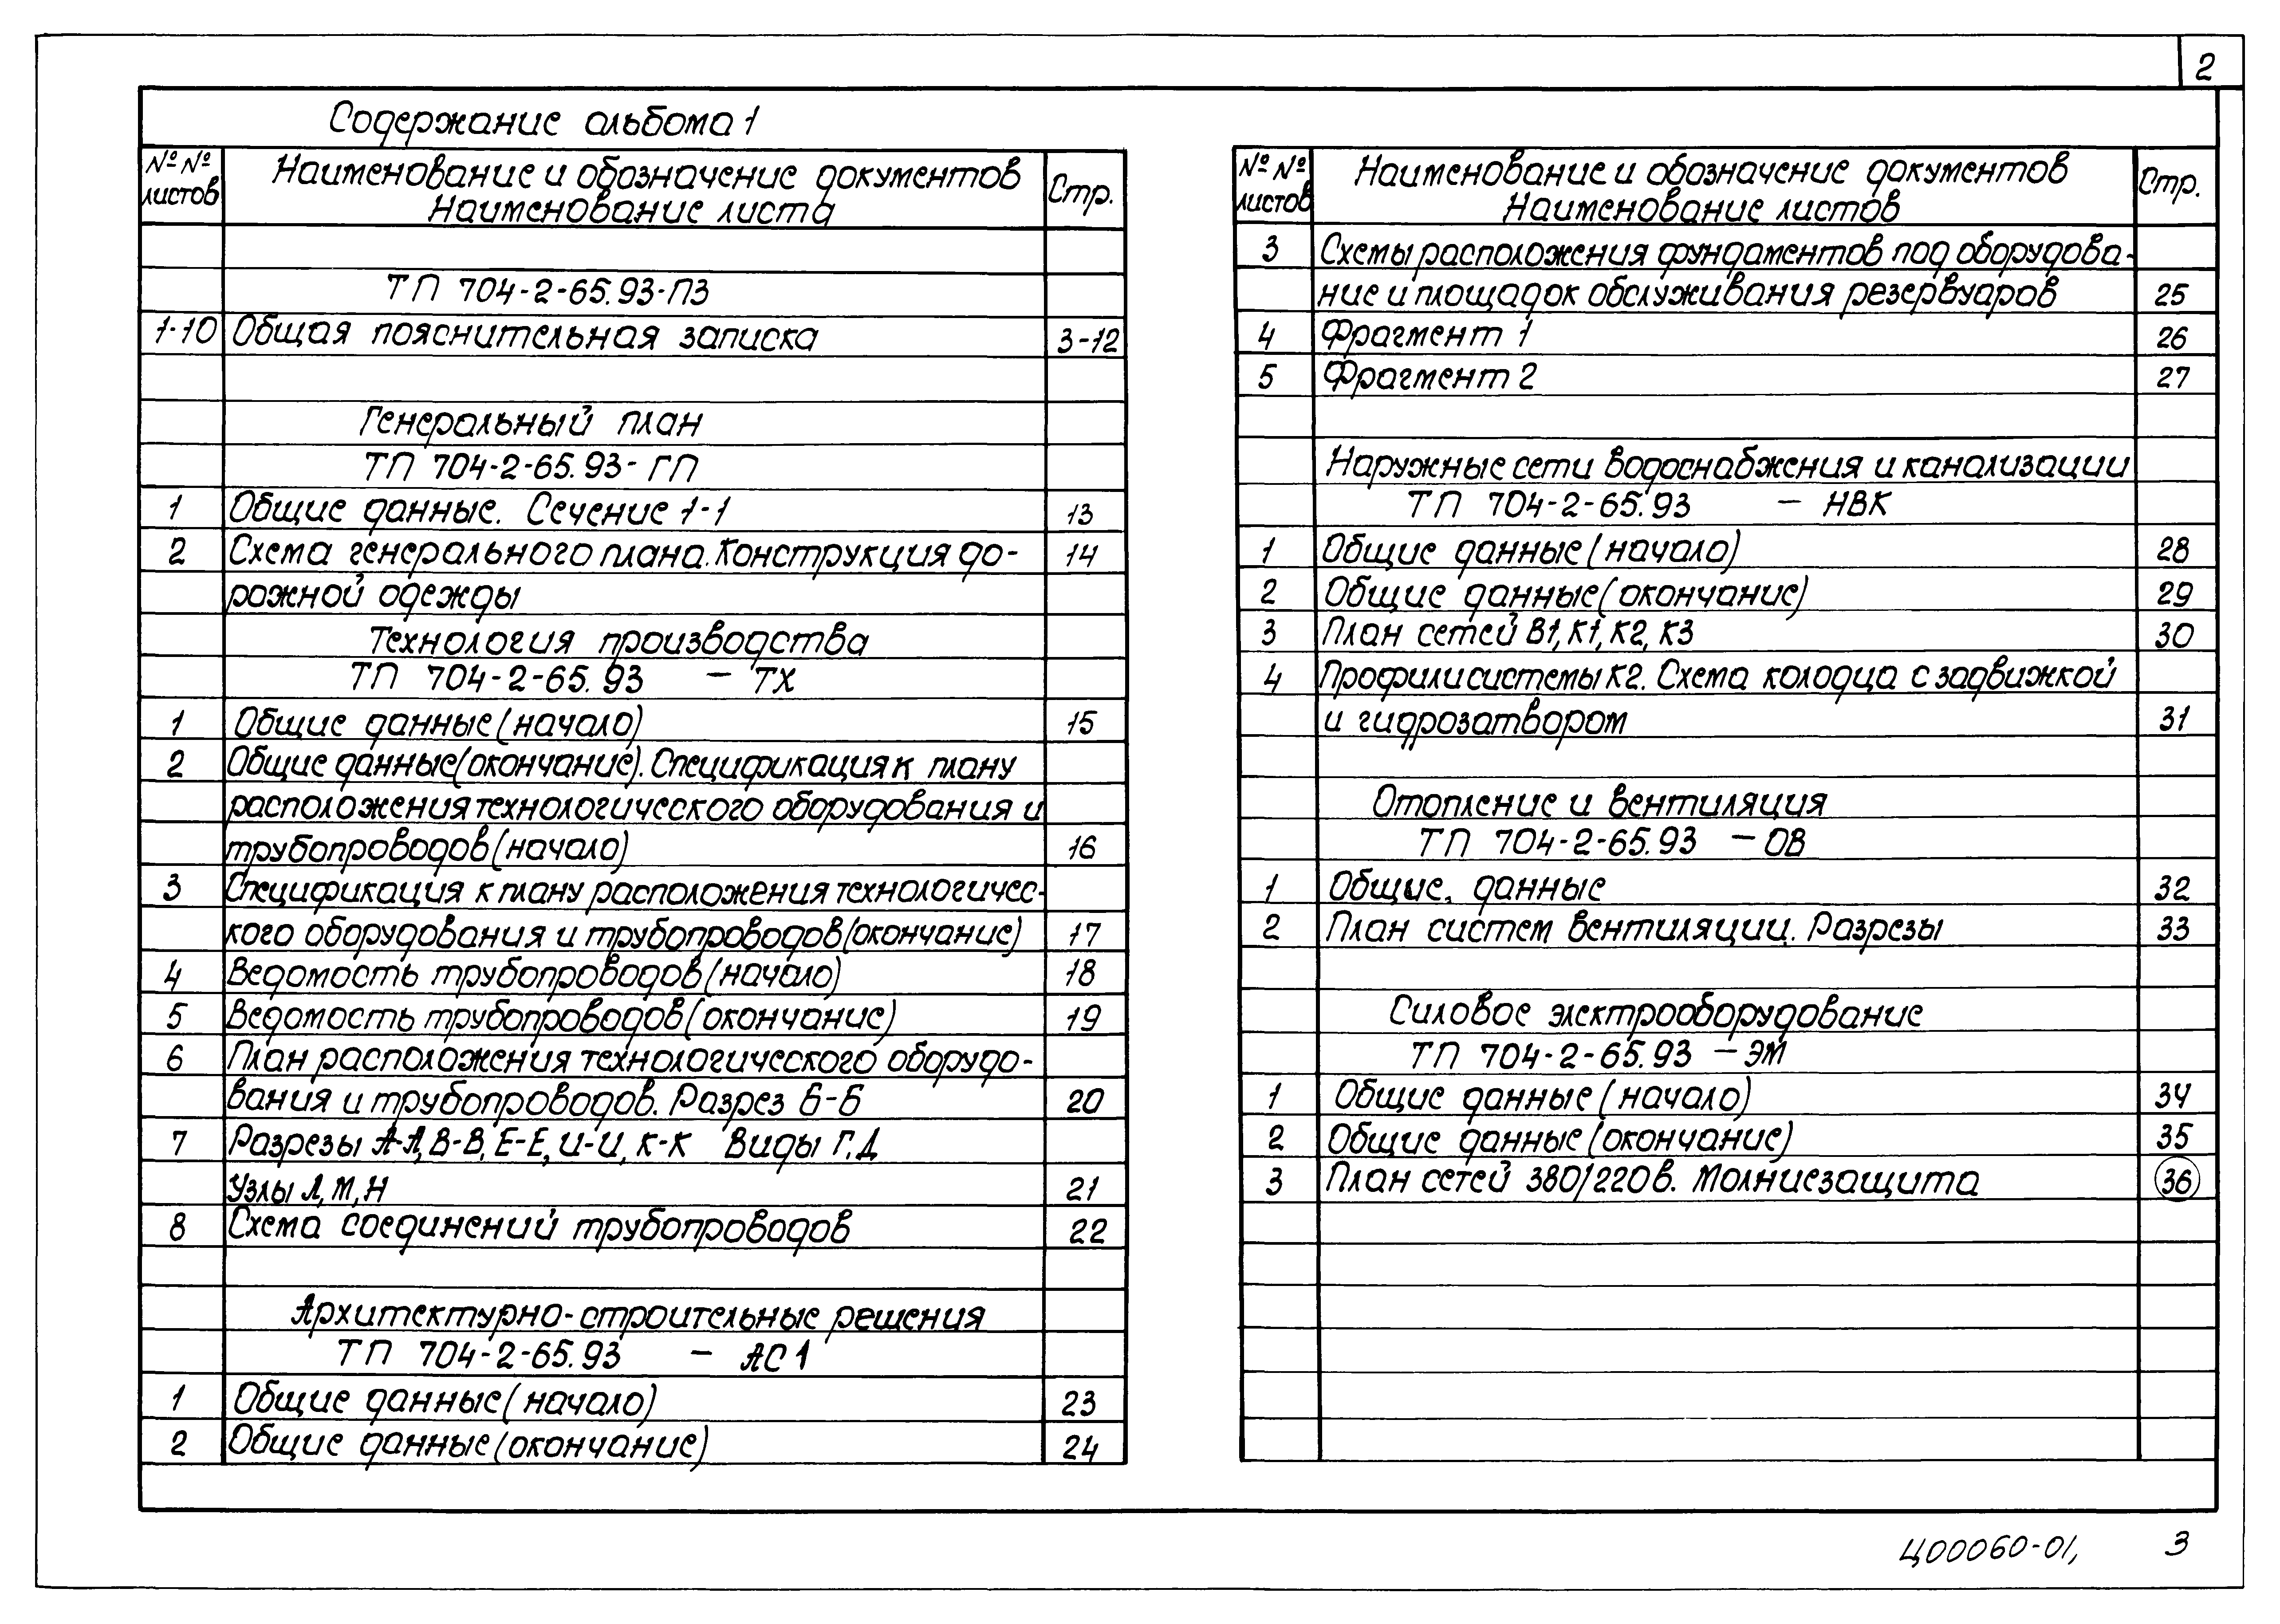 2
Содержание альбома 1
№ №
листов
Наименование и обозначение документов
Наименование листа
Стр.
ТП 704-2-65.93-ПЗ
1-10 Общая пояснительная записка 3-12
Генеральный план
ТП 704-2-65.93-ГП
1 Общие данные. Сечение 1-1 13
2 Схема генерального плана. Конструкция до- 14
рожной одежды
Технология производства
ТП 704-2-65.93 - ТХ
1 Общие данные (начало) 15
2 Общие данные (окончание). Спецификация к плану
расположения технологического оборудования и
трубопроводов (начало) 16
3 Спецификация к плану расположения технологичес-
кого оборудования и трубопроводов (окончание) 17
4 Ведомость трубопроводов (начало) 18
5 Ведомость трубопроводов (окончание) 19
6 План расположения технологического оборудо-
вания и трубопроводов. Разрез Б-Б 20
7 Разрезы А-А, В-В, Е-Е, И-И, К-К Виды Г, Д
Узлы Л, М, Н 21
8 Схема соединений трубопроводов 22
Архитектурно-строительные решения
ТП 704-2-65.93 - АС1
1 Общие данные (начало) 23
2 Общие данные (окончание) 24
№ №
листов
Наименование и обозначение документов
Наименование листов
Стр.
3 Схемы расположения фундаментов под оборудова-
ние и площадок обслуживания резервуаров 25
4 Фрагмент 1 26
5 Фрагмент 2 27
Наружные сети водоснабжения и канализации
ТП 704-2-65.93 - НВК
1 Общие данные (начало) 28
2 Общие данные (окончание) 29
3 План сетей В1, К1, К2, К3 30
4 Профили системы К2. Схема колодца с задвижкой
и гидрозатвором 31
Отопление и вентиляция
ТП 704-2-65.93 - ОВ
1 Общие. данные 32
2 План систем вентиляции. Разрезы 33
Силовое электрооборудование
ТП 704-2-65.93 - ЭМ
1 Общие данные (начало) 34
2 Общие данные (окончание) 35
3 План сетей 380/220в. Молниезащита 36
Ц00060-01, 3